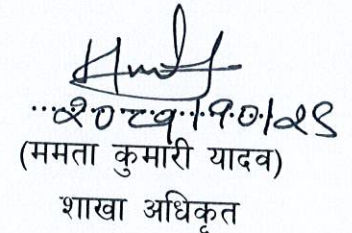 २०८१।१०।२९
(ममता कुमारी यादव)
शाखा अधिकृत